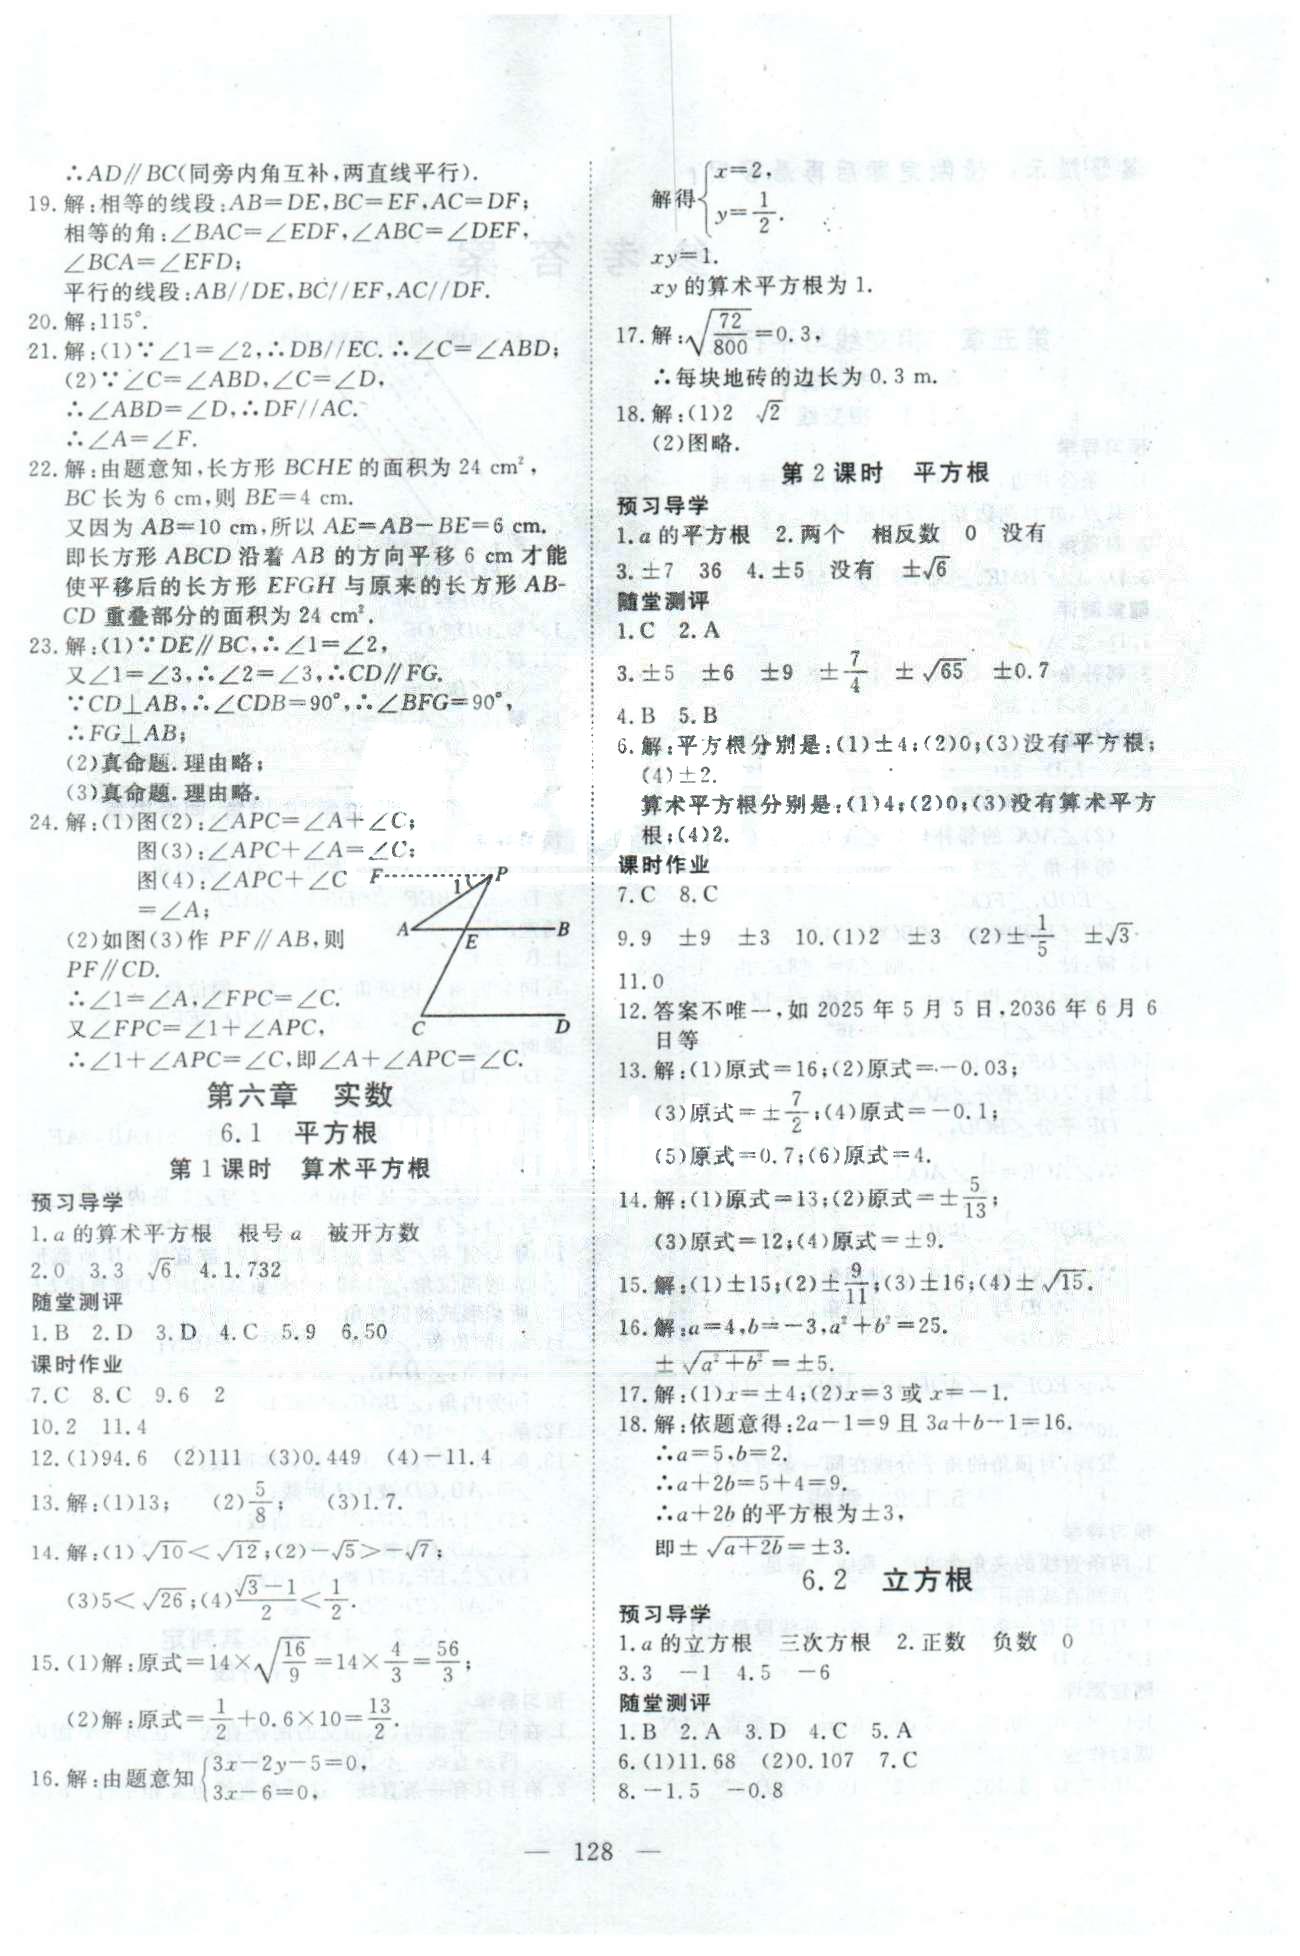 ∴AD∥BC(同旁内角互补,两直线平行).
19.解:相等的线段:AB=DE,BC=EF,AC=DF;
相等的角:∠BAC=∠EDF,∠ABC=∠DEF,
∠BCA=∠EFD;
平行的线段:AB//DE,BC//EF,AC//DF.
20.解:115°.
21.解:(1)∵∠1=∠2,∴DB//EC.∴∠C=∠ABD;
(2)∵∠C=∠ABD,∠C=∠D,
∴∠ABD=∠D,∴DF//AC.
∴∠A=∠F.
22.解:由题意知,长方形 BCHE 的面积为 24 cm²,
BC 长为 6 cm,则 BE=4 cm.
又因为 AB=10 cm,所以 AE=AB-BE=6 cm.
即长方形 ABCD 沿着 AB 的方向平移 6 cm 才能
使平移后的长方形 EFGH 与原来的长方形 AB-
CD 重叠部分的面积为 24 cm².
23.解:(1)∵DE∥BC,∴∠1=∠2,
又∠1=∠3,∴∠2=∠3,∴CD∥FG.
∵CD⊥AB,∴∠CDB=90°,∴∠BFG=90°,
∴FG⊥AB;
(2)真命题.理由略;
(3)真命题.理由略.
24.解:(1)图(2):∠APC=∠A+∠C;
图(3):∠APC+∠A=∠C;
图(4):∠APC+∠C
=∠A;
(2)如图(3)作 PF∥AB,则
PF∥CD.
∴∠1=∠A,∠FPC=∠C.
又∠FPC=∠1+∠APC,
∴∠1+∠APC=∠C,即∠A+∠APC=∠C.
F P
1
A E B
C D
第六章 实数
6.1 平方根
第 1 课时 算术平方根
预习导学
1.a 的算术平方根 根号 a 被开方数
2.0 3.3 √6 4.1.732
随堂测评
1.B 2.D 3.D 4.C 5.9 6.50
课时作业
7.C 8.C 9.6 2
10.2 11.4
12.(1)94.6 (2)111 (3)0.449 (4)-11.4
13.解:(1)13; (2)5/8; (3)1.7.
14.解:(1)√10<√12;(2)-√5>-√7;
(3)5<√26;(4)(√3-1)/2<1/2.
15.(1)解:原式=14×√(16/9)=14×4/3=56/3;
(2)解:原式=1/2+0.6×10=13/2.
16.解:由题意知{3x-2y-5=0,
3x-6=0,
解得{x=2,
y=1/2.
xy=1.
xy 的算术平方根为 1.
17.解:√(72/800)=0.3,
∴每块地砖的边长为 0.3 m.
18.解:(1)2 √2
(2)图略.
第 2 课时 平方根
预习导学
1.a 的平方根 2.两个 相反数 0 没有
3.±7 36 4.±5 没有 ±√6
随堂测评
1.C 2.A
3.±5 ±6 ±9 ±7/4 ±√65 ±0.7
4.B 5.B
6.解:平方根分别是:(1)±4;(2)0;(3)没有平方根;
(4)±2.
算术平方根分别是:(1)4;(2)0;(3)没有算术平方
根;(4)2.
课时作业
7.C 8.C
9.9 ±9 ±3 10.(1)2 ±3 (2)±1/5 ±√3
11.0
12.答案不唯一,如 2025 年 5 月 5 日,2036 年 6 月 6
日等
13.解:(1)原式=16;(2)原式=-0.03;
(3)原式=±7/2;(4)原式=-0.1;
(5)原式=0.7;(6)原式=4.
14.解:(1)原式=13;(2)原式=±5/13;
(3)原式=12;(4)原式=±9.
15.解:(1)±15;(2)±9/11;(3)±16;(4)±√15.
16.解:a=4,b=-3,a²+b²=25.
±√(a²+b²)=±5.
17.解:(1)x=±4;(2)x=3 或 x=-1.
18.解:依题意得:2a-1=9 且 3a+b-1=16.
∴a=5,b=2.
∴a+2b=5+4=9.
∴a+2b 的平方根为±3,
即±√(a+2b)=±3.
6.2 立方根
预习导学
1.a 的立方根 三次方根 2.正数 负数 0
3.3 -1 4.5 -6
随堂测评
1.B 2.A 3.D 4.C 5.A
6.(1)11.68 (2)0.107 7.C
8.-1.5 -0.8
— 128 —